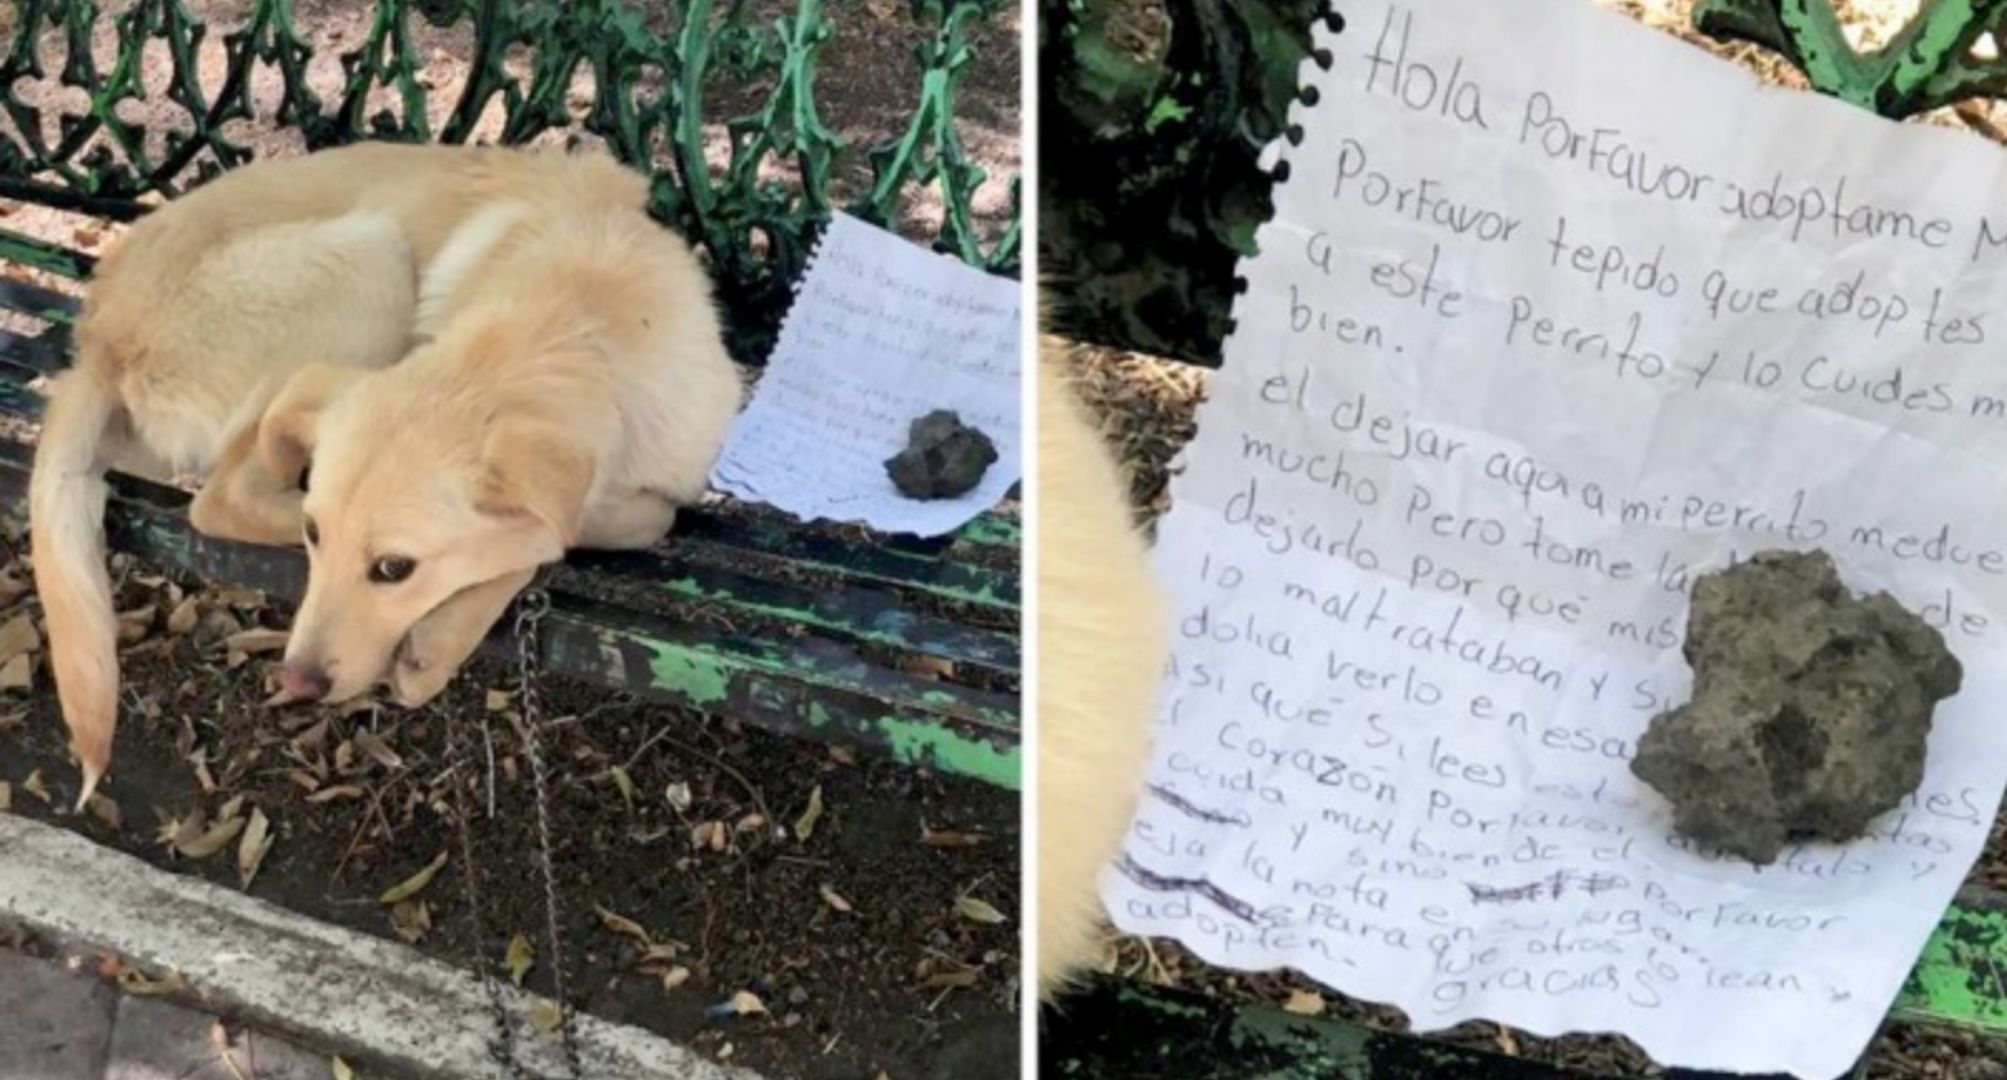 Hola PorFavor adoptame
PorFavor tepido que adoptes
a este Perrito y lo Cuides m
bien.
el dejar aqui a mi perrito medue
mucho Pero tome la de
dejarlo por qué mis
lo maltrataban y su
dolia verlo en esa
Asi qué Si lees esto
el corazón Por favor
cuida muy bien de el
y sino PorFavor
eja la nota en su lugar
Para que otros lo lean y
adopten.
gracias